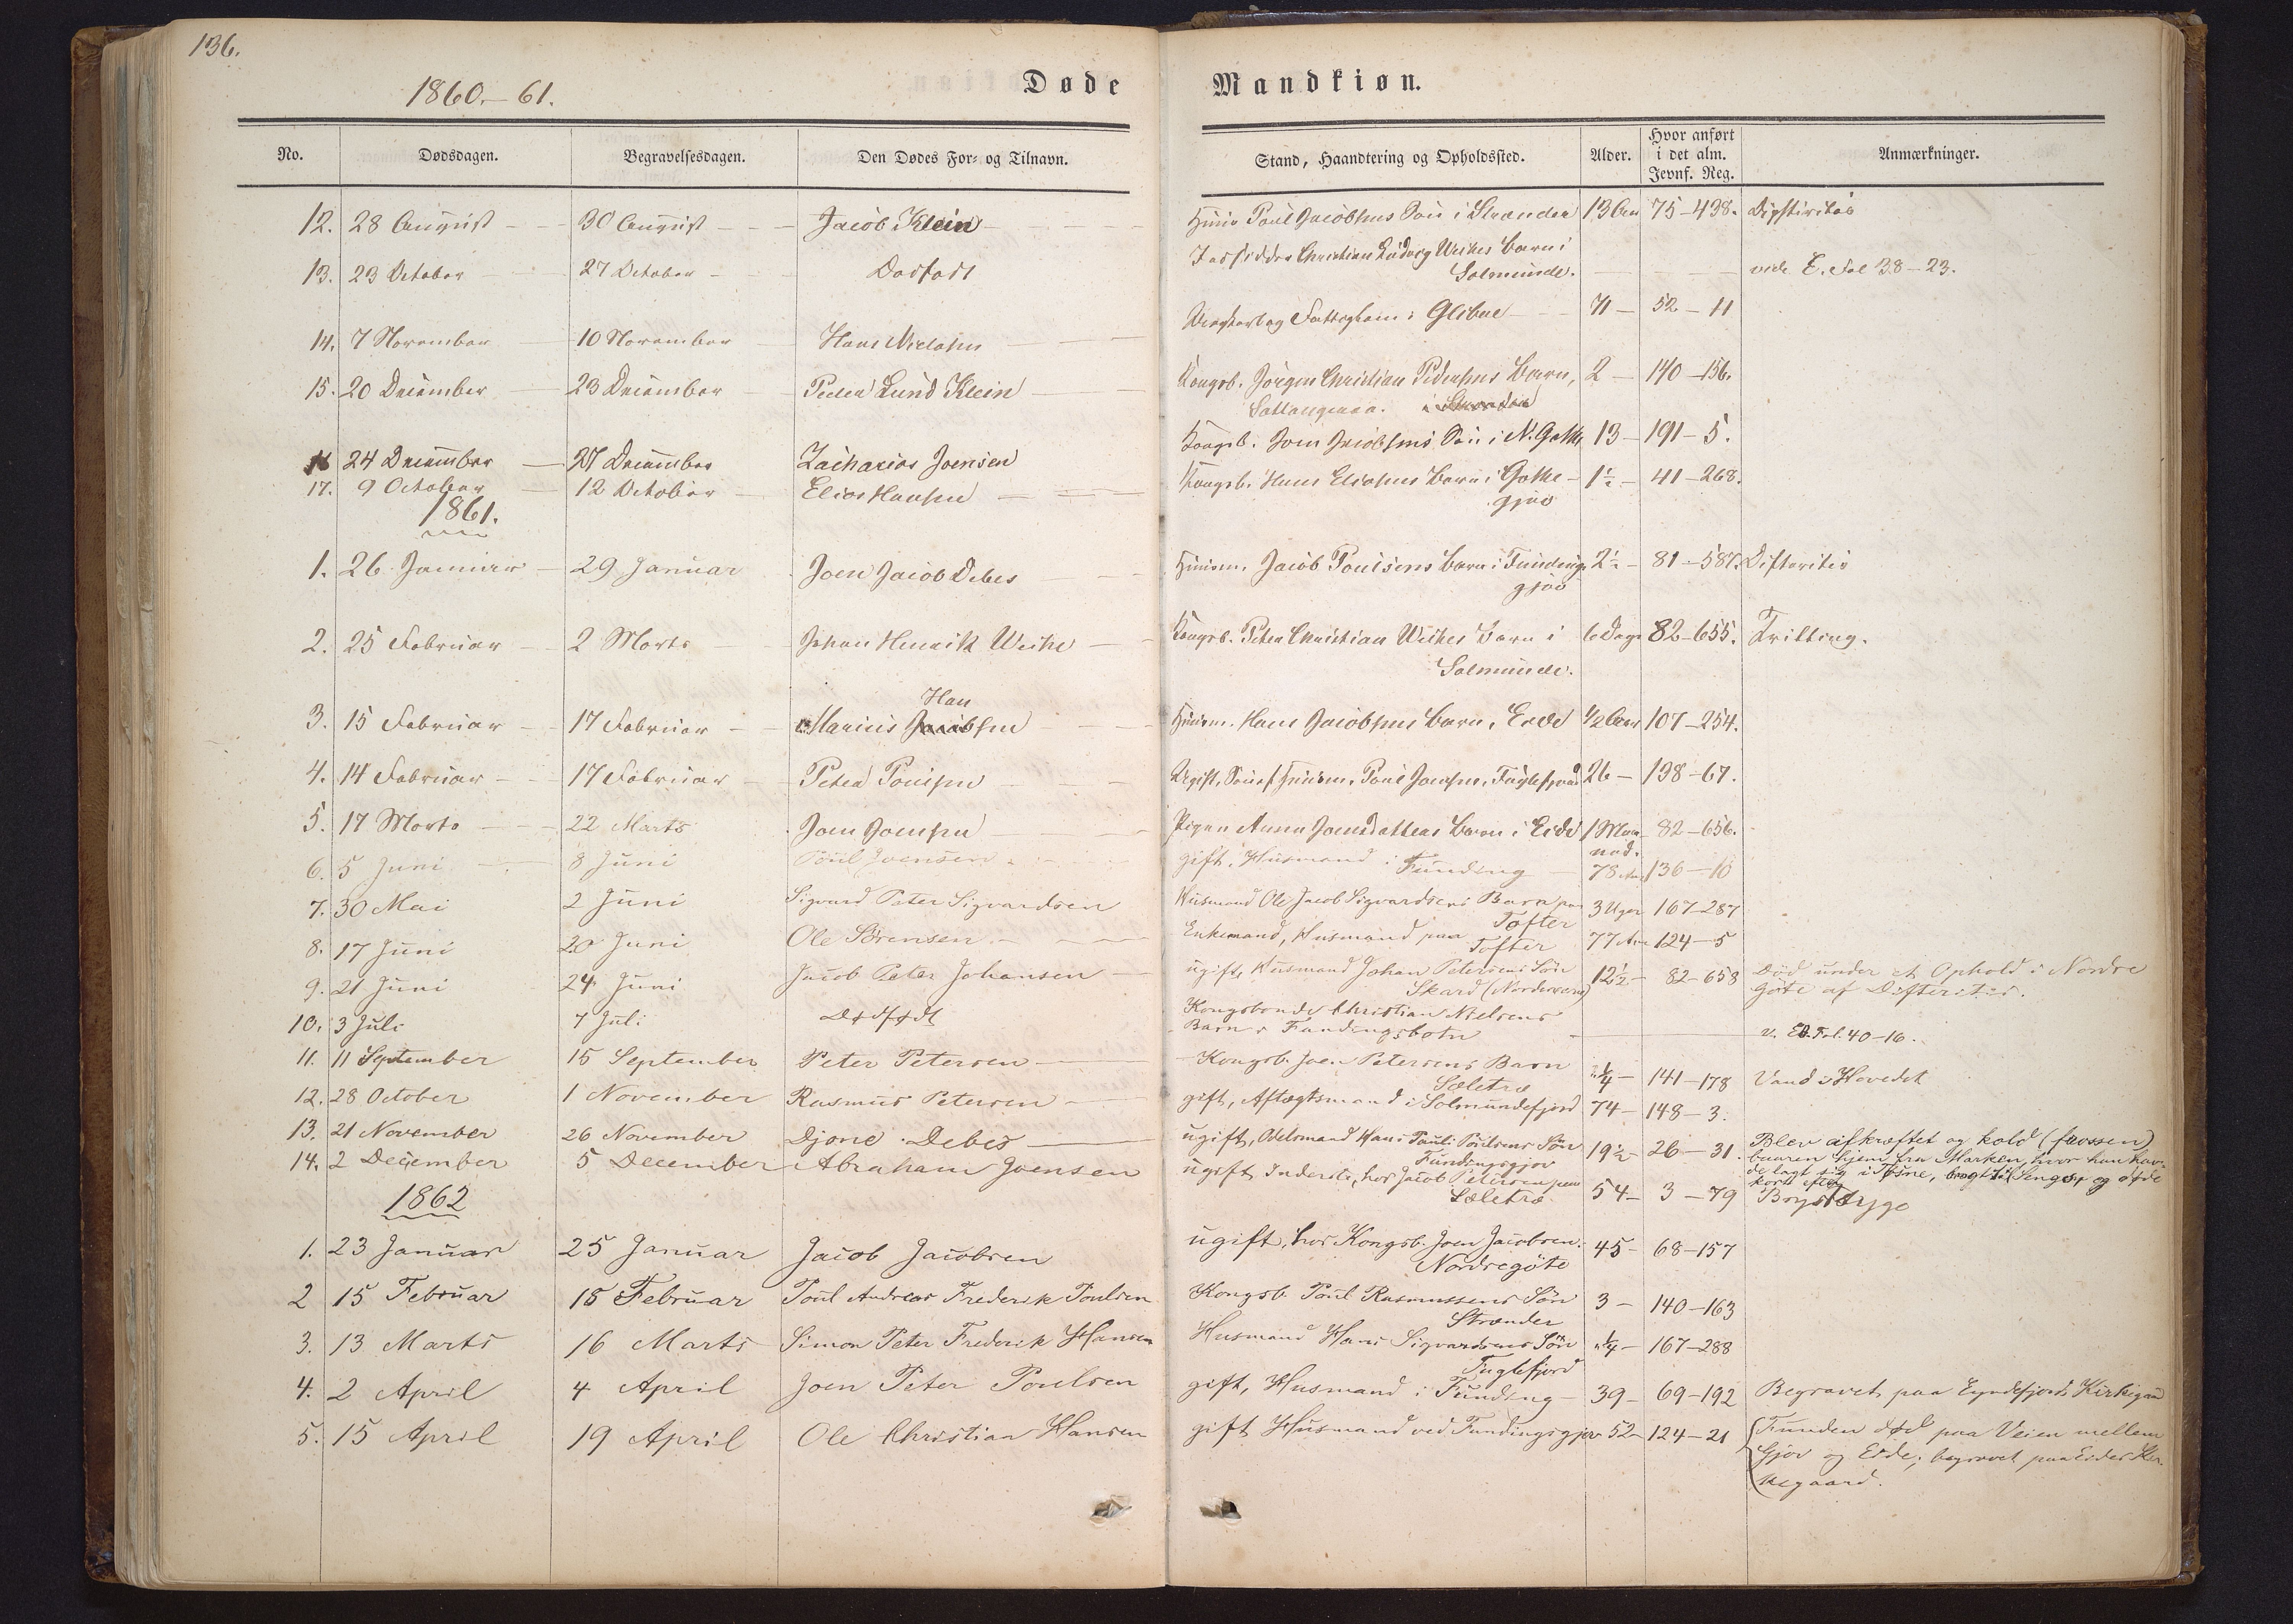 136.
1860.-61.
Døde Mandkiøn.
No. Dødsdagen. Begravelsesdagen. Den Dødes For- og Tilnavn. Stand, Haandtering og Opholdssted. Alder. Hvor anført i det alm. Jevnf. Reg. Anmærkninger.
12. 28 August 30 August Jacob Klein Huusm Poul Jacobsens Søn i Strender 13 Aar 75-438. Difteritis
13. 23 October 27 October Dødfødt Christian Ludvig Weihes Barn i
Solmunde. vide E. Fol 38-23.
14. 7 November 10 November Hans Nielsen og Fattiglem i Glibre 71 52-11
15. 20 December 23 December Peter Lund Klein Kongsb. Jørgen Christian Pedersens Barn, 2 140-156.
Saltangeraa. i Strender
16 24 December 27 December Zacharias Joensen Kongsb. Joen Jacobsens Søn i N. Gøthe 13 191-5.
17. 9 October 12 October Elias Hansen Kongsb. Hans Eliasens Barn i Gøthe- 1½ 41-268.
gjov
1861.
1. 26 Januar 29 Januar Joen Jacob Debes Huusm. Jacob Poulsens Barn i Fundings 2½ 81-587. Difteritis
gjov
2. 25 Februar 2 Marts Johan Henrik Weihe Kongsb. Peter Christian Weihes Barn i 6 Dage 82-655. Trilling.
Solmunde.
3. 15 Februar 17 Februar Marius Jacobsen Han Huusm. Hans Jacobsens Barn, Eide ½ Aar 107-254.
4. 14 Februar 17 Februar Peter Poulsen Ugift, Søn af Huusm. Poul Joensen, Fuglefjord 26 138-67.
5. 17 Marts 22 Marts Joen Joensen Pigen Anna Joensdatters Barn i Eide 1 Maa- 82-656.
ned.
6. 5 Juni 8 Juni Poul Joensen gift, Husmand i Funding 78 Aar 136-10
7. 30 Mai 2 Juni Sigvard Peter Sigvardsen Husmand Ole Jacob Sigvardsens Barn paa 3 Uger 167-287
Tofter
8. 17 Juni 20 Juni Ole Sørensen Enkemand, Husmand paa 77 Aar 124-5
Tofter
9. 21 Juni 24 Juni Jacob Peter Johansen ugift, Husmand Johan Petersens Søn 12½ 82-658 Død under et Ophold i Nordre
Skard (Norderøerne) Gøte af Difteritis.
10. 3 Juli 7 Juli Dødfødt Kongsbonde Christian Nielsens
Barn i Fundingsbotn v. E. Fol. 40-16.
11. 11 September 15 September Peter Petersen Kongsb. Joen Petersens Barn ¼ 141-178 Vand i Hovedet
Seletræ
12. 28 October 1 November Rasmus Petersen gift, Aftægtsmand i Solmundefjord 74 148-3.
13. 21 November 26 November Djone Debes ugift, Odelsmand Hans Pauli Poulsens Søn 19½ 26-31. Blev afkræftet og kold (frossen)
Fundingsgjov baaren hjem fra Marken, hvor han hav-
de lagt sig i Tøsne, bragt til Sengs og døde
kort efter
14. 2 December 5 December Abraham Joensen ugift Inderste, hos Jacob Petersen paa 54 3-79 Brystsyge
Seletræ
1862
1. 23 Januar 25 Januar Jacob Jacobsen ugift, hos Kongsb. Joen Jacobsen. 45 68-157
Nordregöte
2 15 Februar 18 Februar Poul Andreas Frederik Poulsen Kongsb. Poul Rasmussens Søn 3 140-163
Strender
3. 13 Marts 16 Marts Simon Peter Frederik Hansen Husmand Hans Sigvardsens Søn ¼ 167-288
Fuglefjord
4. 2 April 4 April Joen Peter Poulsen gift, Husmand i Funding 39 69-192 Begravet paa Eyndefjords Kirkegaard
5. 15 April 19 April Ole Christian Hansen gift Husmand ved Fundingsgjov 52 124-21 Funden død paa Veien mellem
Gjov og Eide; begravet paa Eides Kir-
kegaard.